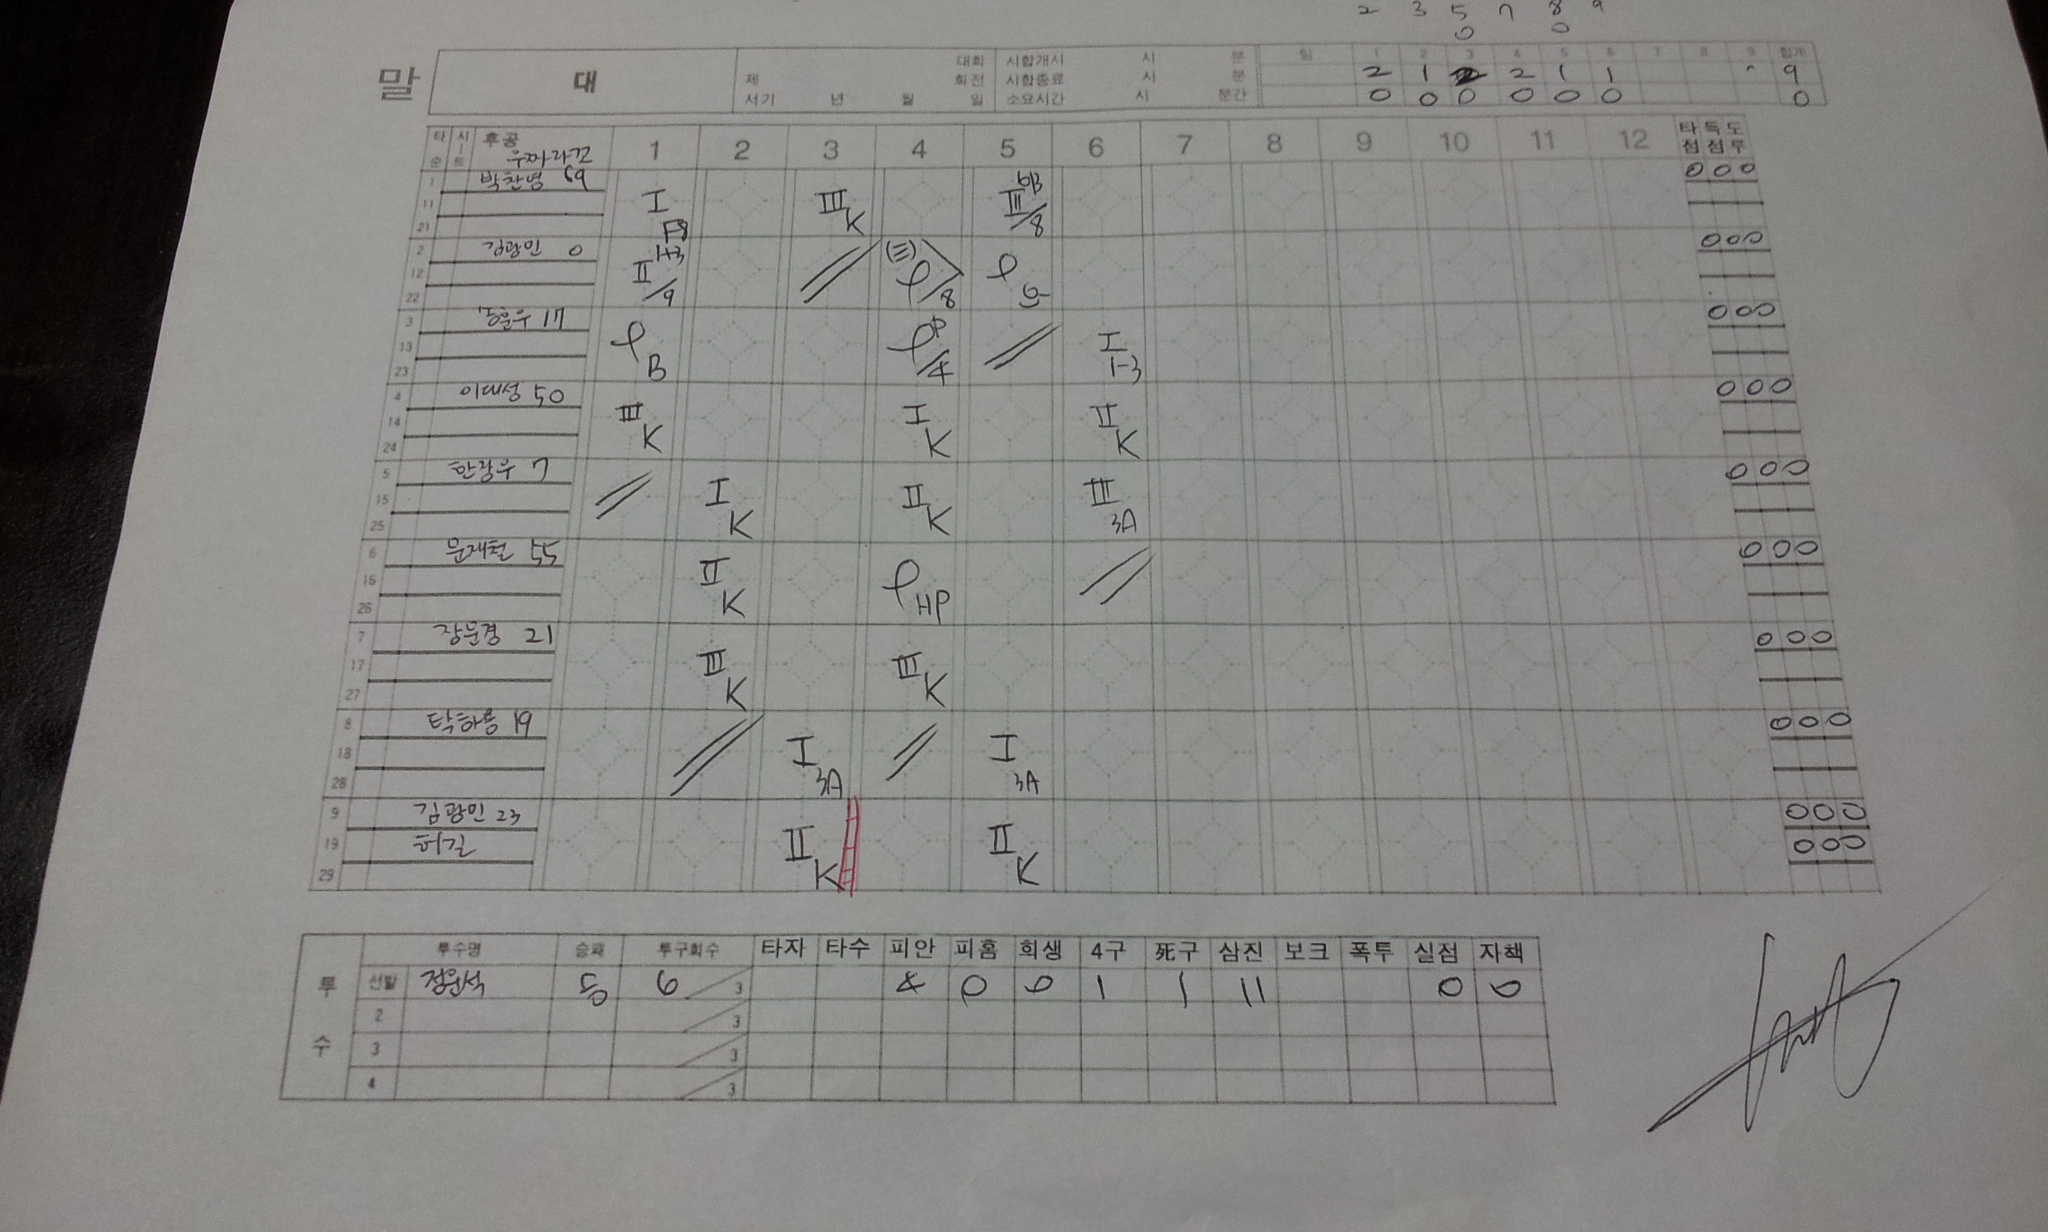 2 3 5 7 8 9
0 0
말 대 제 대회 회전 시합개시 시 분 팀 1 2 3 4 5 6 7 8 9 합계
시합종료 시 분 2 1 2 2 1 1 9
서기 년 월 일 소요시간 시 분간 0 0 0 0 0 0 0
타순 시트 후공 1 2 3 4 5 6 7 8 9 10 11 12 타점 득점 도루
1 11 21 박찬영 69 I III K III /8 0 0 0
2 12 22 김광민 0 II /9 /8 0 0 0
3 13 23 17 B /4 I 1-3 0 0 0
4 14 24 이대성 50 III K I K II K 0 0 0
5 15 25 한광우 7 I K II K III 3A 0 0 0
6 16 26 문재철 55 II K HP 0 0 0
7 17 27 장문경 21 III K III K 0 0 0
8 18 28 탁하용 19 I 3A I 3A 0 0 0
9 19 29 김광민 23 II K II K 0 0 0
허길 0 0 0
투수 투수명 승패 투구회수 타자 타수 피안 피홈 희생 4구 死구 삼진 보크 폭투 실점 자책
선발 정문석 승 6 /3 4 0 0 1 1 11 0 0
2 /3
3 /3
4 /3